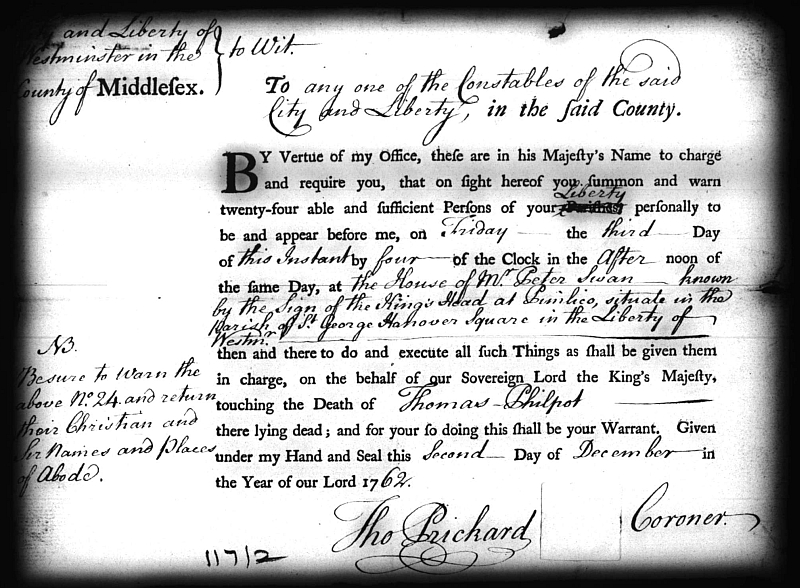 City and Liberty of
Westminster in the } to Wit.
County of Middleſex.
To any one of the Constables of the said
City and Liberty, in the ſaid County.
BY Vertue of my Office, theſe are in his Majeſty's Name to charge
and require you, that on ſight hereof you ſummon and warn
Liberty
twenty-four able and ſufficient Perſons of your Pariſhes, perſonally to
be and appear before me, on Friday the third Day
of this Instant by four of the Clock in the After noon of
the ſame Day, at the House of Mr. Peter Swan known
by the Sign of the King's Head at Pimlico, situate in the
Parish of St. George Hanover Square in the Liberty of
Westmr.
then and there to do and execute all ſuch Things as ſhall be given them
in charge, on the behalf of our Sovereign Lord the King's Majeſty,
touching the Death of Thomas Philpot
there lying dead; and for your ſo doing this ſhall be your Warrant. Given
under my Hand and Seal this Second Day of December in
the Year of our Lord 1762.
NB.
Be sure to Warn the
above No. 24. and return
their Christian and
Sir Names and Places
of Abode.
Tho Prichard Coroner.
117/2